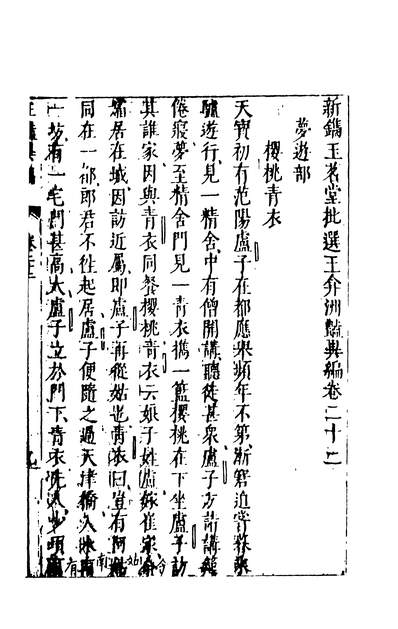 新鐫玉茗堂批選王弇洲艷異編卷二十二
夢遊部
櫻桃青衣
天寶初有范陽盧子在都應舉頻年不第漸窘迫嘗暮乘
驢遊行見一精舍中有僧開講聽徒甚衆盧子方詣講筵
倦寢夢至精舍門見一青衣攜一籃櫻桃在下坐盧子訪
其誰家因與青衣同餐櫻桃青衣云娘子姓盧嫁崔家今
孀居在城因訪近屬即盧子再從姑也青衣曰豈有阿姑
同在一都郎君不徃起居盧子便隨之過天津橋入水南
一坊有一宅門甚高大盧子立於門下青衣先入少頃